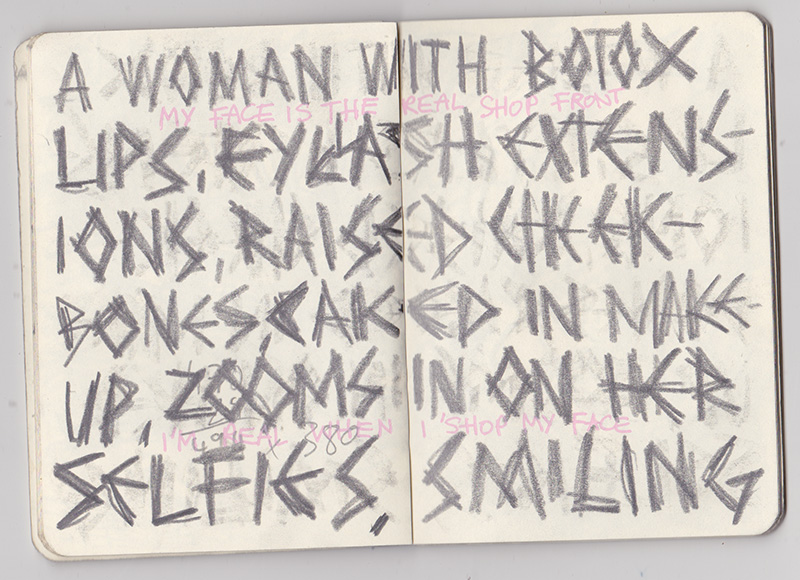 A WOMAN WITH BOTOX
MY FACE IS THE REAL SHOP FRONT
LIPS, EYLASH EXTENS-
IONS, RAISED CHEEK-
BONES CAKED IN MAKE-
UP, ZOOMS IN ON HER
I'M REAL WHEN I 'SHOP MY FACE
x 380
SELFIES, SMILING